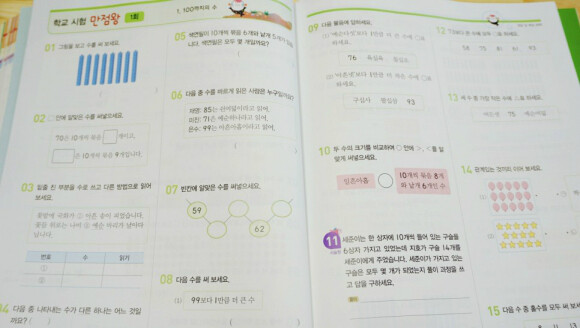 학교 시험 만점왕 1회
1. 100까지의 수
01 그림을 보고 수를 써 보세요.
02 □ 안에 알맞은 수를 써넣으세요.
70은 10개씩 묶음 □개이고,
□은 10개씩 묶음 9개입니다.
03 밑줄 친 부분을 수로 쓰고 다른 방법으로 읽어
보세요.
번호 수 읽기
①
②
04 다음 중 나타내는 수가 다른 하나는 어느 것일
까요? ( )
05 색연필이 10개씩 묶음 6개와 낱개 5개가
니다. 색연필은 모두 몇 개일까요?
06 다음 중 수를 바르게 읽은 사람은 누구일까요?
85는 팔십오이라고 읽어.
71은 예순하나라고 읽어.
은수: 99는 아흔아홉이라고 읽어.
07 빈칸에 알맞은 수를 써넣으세요.
59
62
08 다음 수를 써 보세요.
(1) 99보다 1만큼 더 큰 수
09 다음 물음에 답하세요.
76
93
10 두 수의 크기를 비교하여 ○ 안에 >, <를 알
맞게 써넣으세요.
일흔아홉 ○ 10개씩 묶음 8개
와 낱개 6개인 수
11 세준이는 한 상자에 10개씩 들어 있는 구슬을
6상자 가지고 있었는데 지호가 구슬 14개를
세준이에게 주었습니다. 세준이가 가지고 있는
구슬은 모두 몇 개가 되었는지 풀이 과정을 쓰
고 답을 구하세요.
풀이
12
58 75 81 93
13
75 예순아홉
14 관계있는 것끼리 이어 보세요.
15 다음 수 중 홀수를 모두 써 보